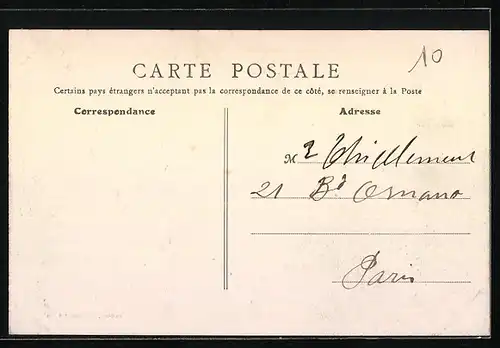 10
CARTE POSTALE
Certains pays étrangers n'acceptant pas la correspondance de ce côté, se renseigner à la Poste
Correspondance
Adresse
M
21 Bd Ornano
Paris